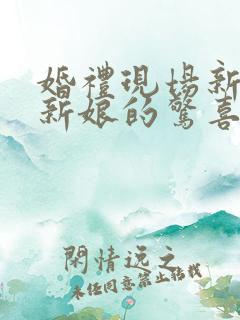 婚禮現場新
新娘的驚喜
閑情逸之
未经同意禁止转载